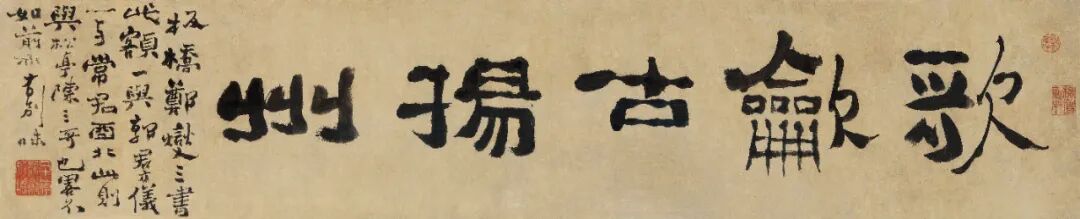 歌龡古揚州
板橋鄭燮三書
此額一與郭君方儀
一与常君酉北此則
與松亭陳三哥也畧不
如前亦有別味